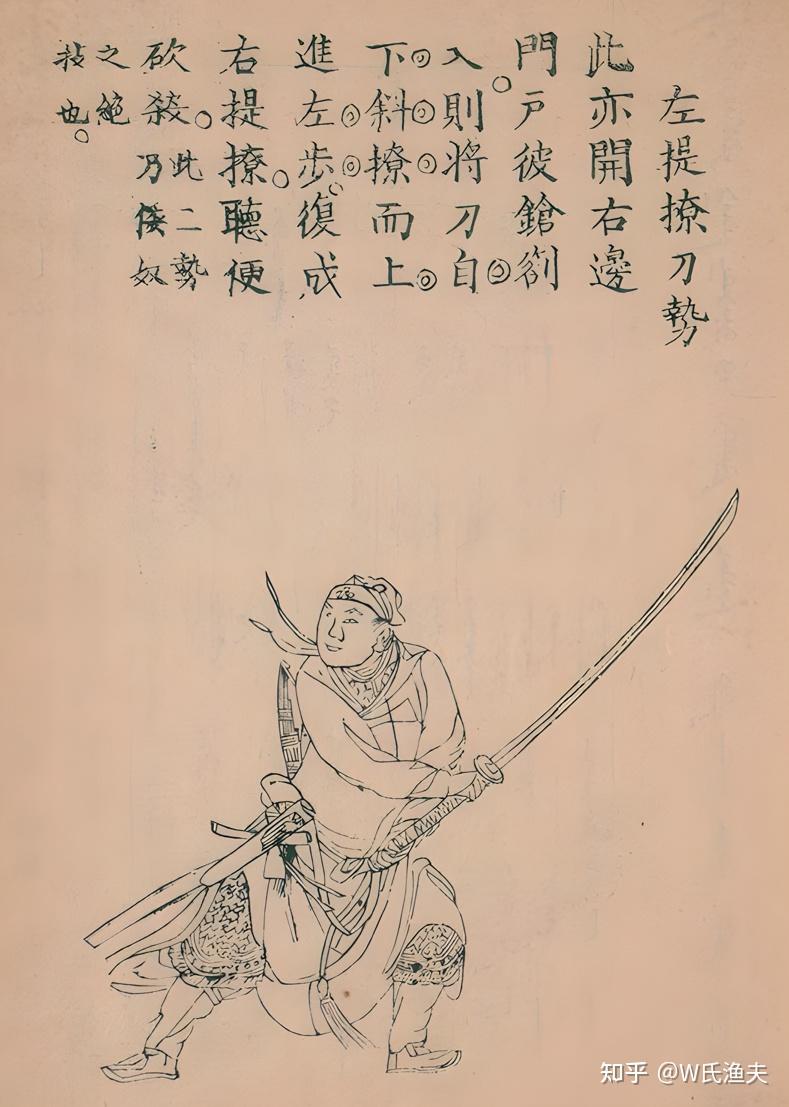 左提撩刀勢
此亦開右邊
門戶彼鎗劄
入。則將刀自
下斜撩而上
進左步。復成
右提撩。聽便
砍殺。此二勢
乃倭奴
之絕
技也。
知乎 @W氏渔夫